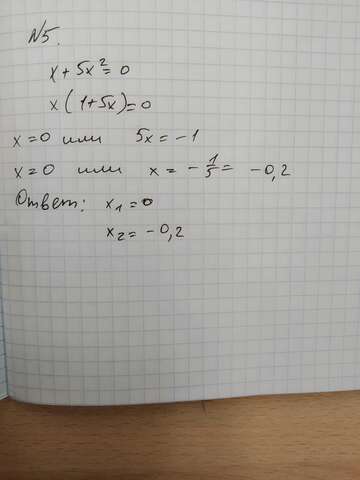 N5.
x + 5x² = 0
x(1+5x)=0
x=0 или 5x = -1
x=0 или x = -1/5 = -0,2
Ответ: x₁ = 0
x₂ = -0,2